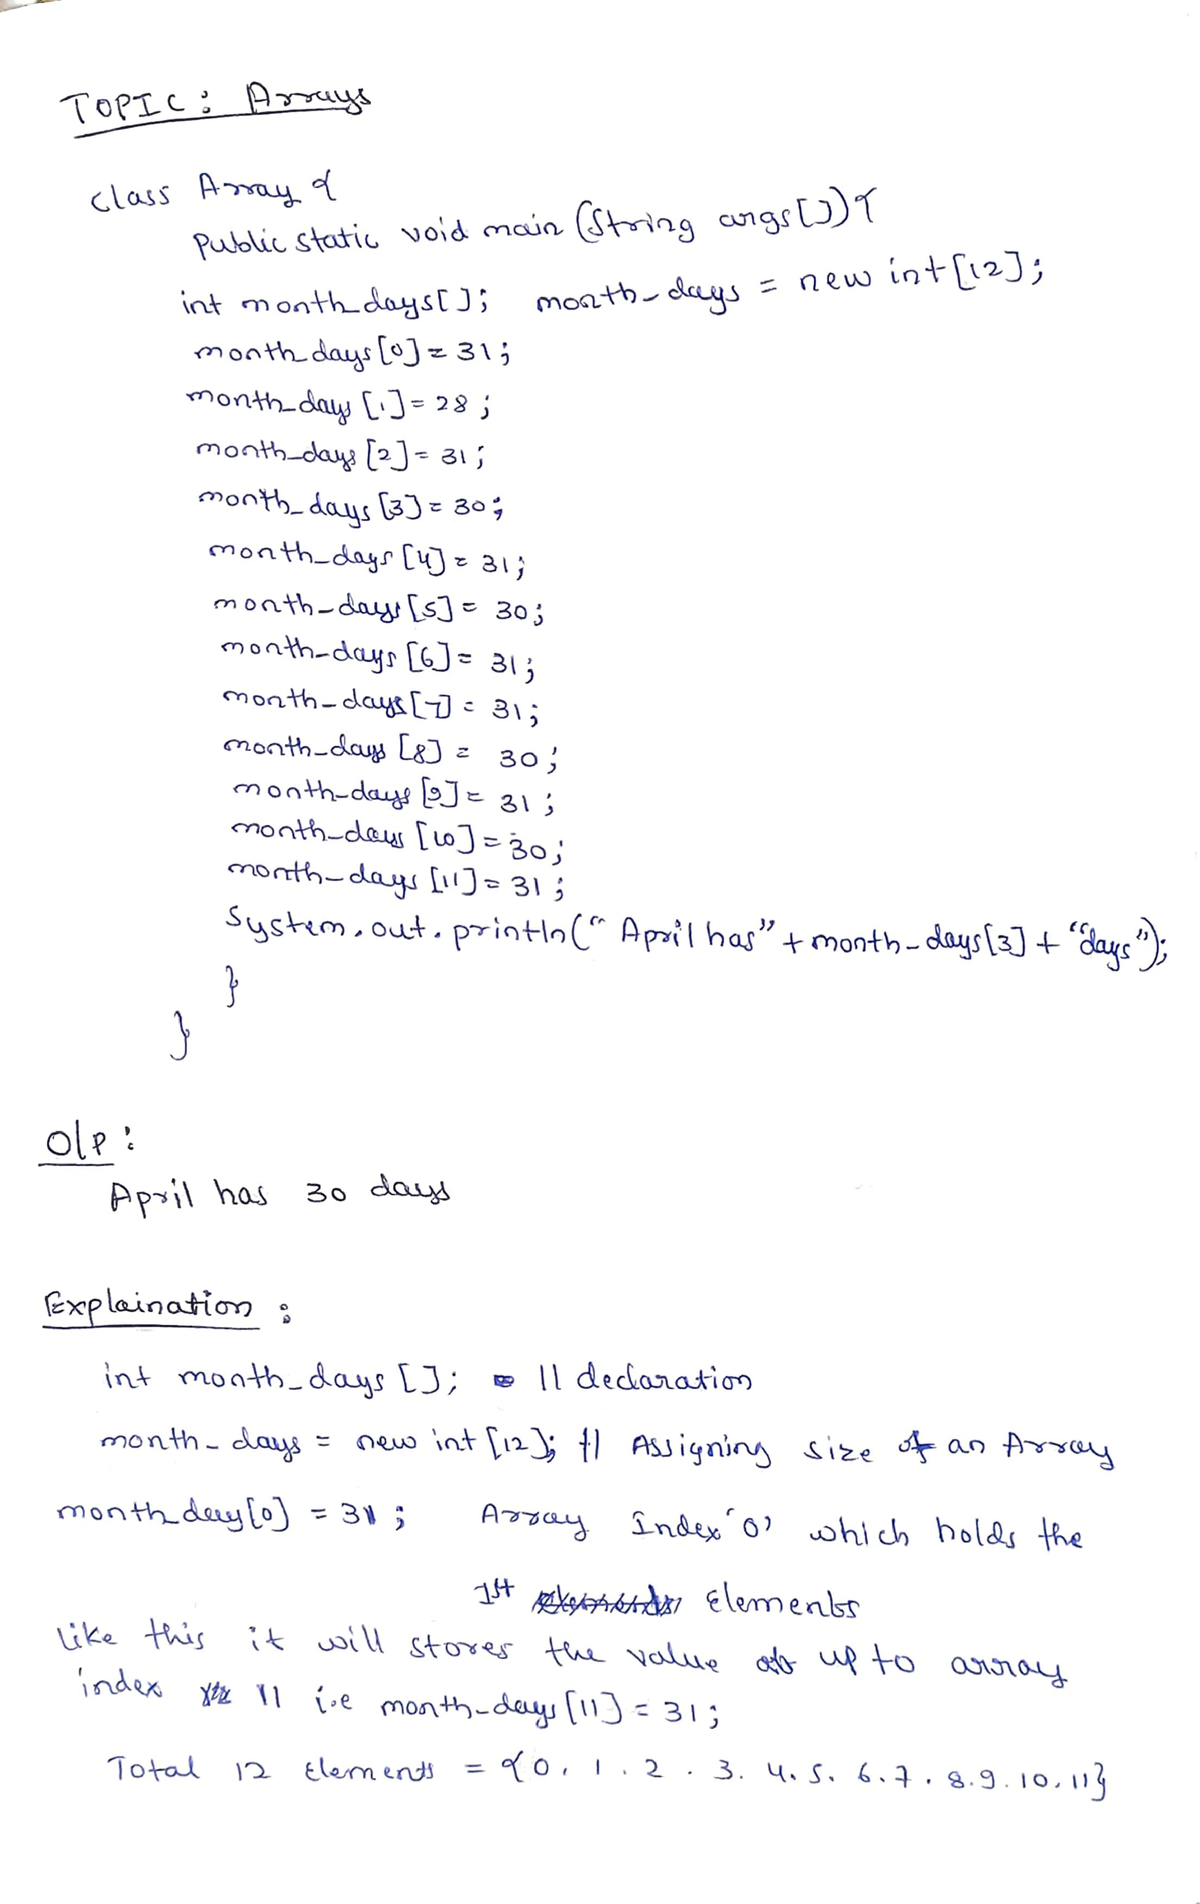 TOPIC : Arrays
class Array {
public static void main (String args[]){
int month_days[]; month_days = new int[12];
month_days[0] = 31;
month_days [1] = 28;
month_days [2] = 31;
month_days [3] = 30;
month_days [4] = 31;
month_days [5] = 30;
month_days [6] = 31;
month_days [7] = 31;
month_days [8] = 30;
month_days [9] = 31;
month_days [10] = 30;
month_days [11] = 31;
System.out.println(" April has" + month_days[3] + "days");
}
}
O/P :
April has 30 days
Explaination :
int month_days []; // declaration
month_days = new int [12]; // Assigning size of an Array
month_day[0] = 31; Array Index '0' which holds the
1st Elements
like this it will stores the value up to array
index 11 i.e month_days [11] = 31;
Total 12 Elements = {0, 1. 2 . 3. 4. 5. 6. 7. 8. 9. 10. 11}